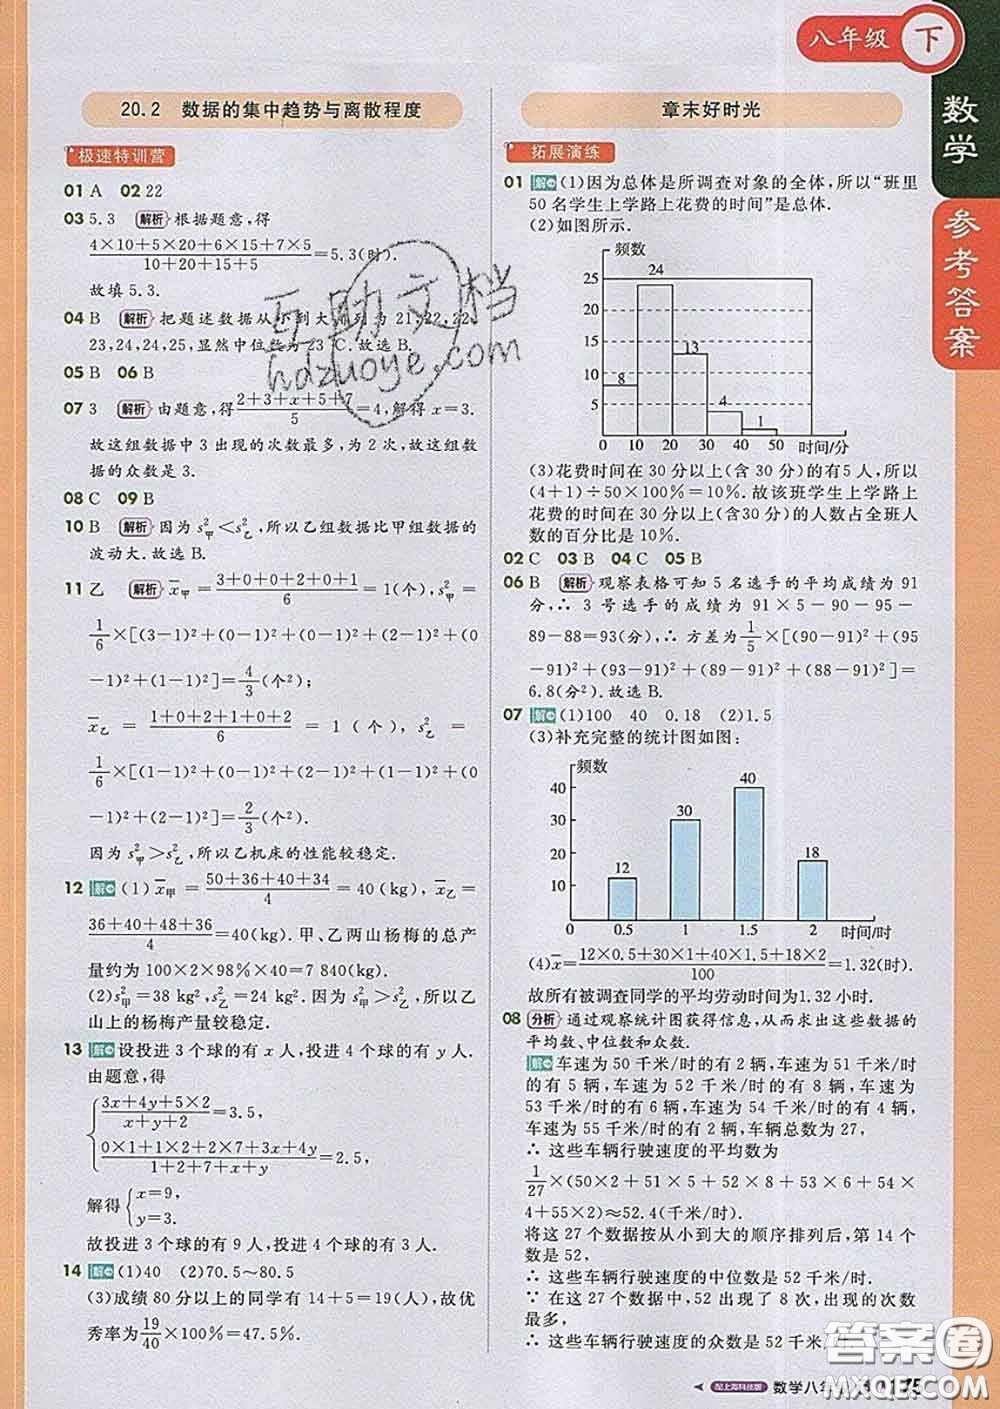 八年级 下
数学
参考答案
20.2 数据的集中趋势与离散程度
极速特训营
01 A 02 22
03 5.3 解析 根据题意,得
(4×10+5×20+6×15+7×5)/(10+20+15+5)=5.3(时).
故填 5.3.
04 B 解析 把题述数据从小到大排列为 21,22,22,
23,24,24,25,显然中位数为 23℃.故选 B.
05 B 06 B
07 3 解析 由题意,得(2+3+x+5+7)/5=4,解得 x=3.
故这组数据中 3 出现的次数最多,为 2 次,故这组数
据的众数是 3.
08 C 09 B
10 B 解析 因为 s²甲<s²乙,所以乙组数据比甲组数据的
波动大.故选 B.
11 乙 解析 x̄甲=(3+0+0+2+0+1)/6=1(个),s²甲=
1/6×[(3-1)²+(0-1)²+(0-1)²+(2-1)²+(0
-1)²+(1-1)²]=4/3(个²);
x̄乙=(1+0+2+1+0+2)/6=1(个),s²乙=
1/6×[(1-1)²+(0-1)²+(2-1)²+(1-1)²+(0
-1)²+(2-1)²]=2/3(个²).
因为 s²甲>s²乙,所以乙机床的性能较稳定.
12 解 (1)x̄甲=(50+36+40+34)/4=40(kg),x̄乙=
(36+40+48+36)/4=40(kg).甲、乙两山杨梅的总产
量约为 100×2×98%×40=7 840(kg).
(2)s²甲=38 kg²,s²乙=24 kg².因为 s²甲>s²乙,所以乙
山上的杨梅产量较稳定.
13 解 设投进 3 个球的有 x 人,投进 4 个球的有 y 人.
由题意,得
(3x+4y+5×2)/(x+y+2)=3.5,
(0×1+1×2+2×7+3x+4y)/(1+2+7+x+y)=2.5,
解得 {x=9,
y=3.
故投进 3 个球的有 9 人,投进 4 个球的有 3 人.
14 解 (1)40 (2)70.5~80.5
(3)成绩 80 分以上的同学有 14+5=19(人),故优
秀率为19/40×100%=47.5%.
章末好时光
拓展演练
01 解 (1)因为总体是所调查对象的全体,所以“班里
50 名学生上学路上花费的时间”是总体.
(2)如图所示.
频数
25
20
15
10
5
8
24
13
4
1
0 10 20 30 40 50 时间/分
(3)花费时间在 30 分以上(含 30 分)的有 5 人,所以
(4+1)÷50×100%=10%.故该班学生上学路上
花费的时间在 30 分以上(含 30 分)的人数占全班人
数的百分比是 10%.
02 C 03 B 04 C 05 B
06 B 解析 观察表格可知 5 名选手的平均成绩为 91
分,∴ 3 号选手的成绩为 91×5-90-95-
89-88=93(分),∴ 方差为1/5×[(90-91)²+(95
-91)²+(93-91)²+(89-91)²+(88-91)²]=
6.8(分²).故选 B.
07 解 (1)100 40 0.18 (2)1.5
(3)补充完整的统计图如图:
频数
40
30
20
10
12
30
40
18
0 0.5 1 1.5 2 时间/时
(4)x̄=(12×0.5+30×1+40×1.5+18×2)/100=1.32(时).
故所有被调查同学的平均劳动时间为 1.32 小时.
08 分析 通过观察统计图获得信息,从而求出这些数据的
平均数、中位数和众数.
解 车速为 50 千米/时的有 2 辆,车速为 51 千米/时
的有 5 辆,车速为 52 千米/时的有 8 辆,车速为
53 千米/时的有 6 辆,车速为 54 千米/时的有 4 辆,
车速为 55 千米/时的有 2 辆,车辆总数为 27,
∴ 这些车辆行驶速度的平均数为
1/27×(50×2+51×5+52×8+53×6+54×
4+55×2)≈52.4(千米/时).
将这 27 个数据按从小到大的顺序排列后,第 14 个
数是 52,
∴ 这些车辆行驶速度的中位数是 52 千米/时.
∵ 在这 27 个数据中,52 出现了 8 次,出现的次数
最多,
∴ 这些车辆行驶速度的众数是 52 千米/时.
配上海科技版 数学八年
互助文档
hdzuoye.com
答案圈
MXQE.COM